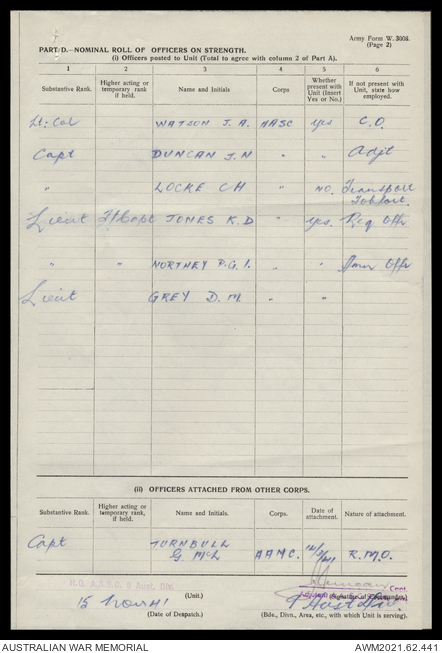 Army Form W. 3008.
(Page 2)
PART D.—NOMINAL ROLL OF OFFICERS ON STRENGTH.
(i) Officers posted to Unit (Total to agree with column 2 of Part A).
1 2 3 4 5 6
Substantive Rank. Higher acting or temporary rank if held. Name and Initials Corps Whether present with Unit (Insert Yes or No.) If not present with Unit, state how employed.
Lt: Col WATSON J. A. AASC yes C.O.
Capt DUNCAN J.N " " Adjt
" LOCKE C H " NO. Transport
Lieut T/Capt JONES K. D " yes. Req Offr
" " NORTHEY P.G.I. " " Offr
Lieut GREY D. M. " "
(ii) OFFICERS ATTACHED FROM OTHER CORPS.
Substantive Rank. Higher acting or temporary rank, if held. Name and Initials. Corps. Date of attachment. Nature of attachment.
Capt TURNBULL
G. McL AAMC. R.M.O.
H.Q. A.A.S.C. 9 Aust. Div.
(Unit.) (Signature of Commander.)
15 Nov 41
(Date of Despatch.) (Bde., Divn., Area, etc., with which Unit is serving).
AUSTRALIAN WAR MEMORIAL AWM2021.62.441